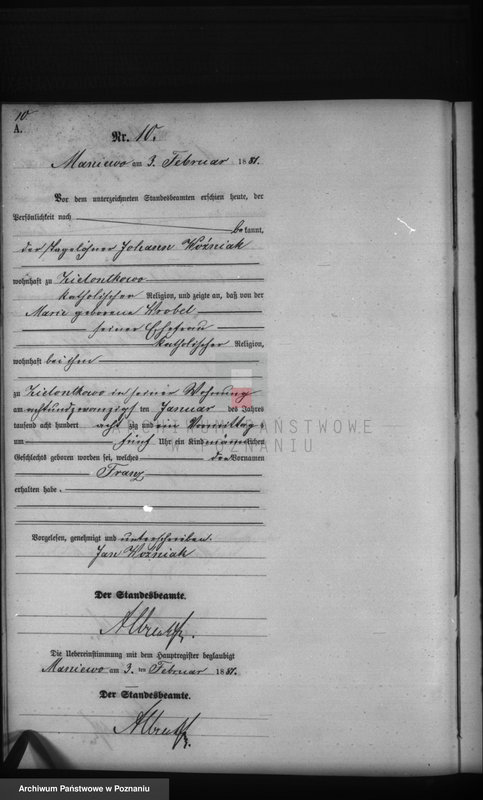 10
A.
Nr. 10.
Maniewo am 3. Februar 1881.
Vor dem unterzeichneten Standesbeamten erschien heute, der
Persönlichkeit nach
bekannt,
der Tagelöhner Johann Woźniak
wohnhaft zu Zielontkowo
katholischer Religion, und zeigte an, daß von der
Marie geborene Wrobel
seiner Ehefrau
katholischer Religion,
wohnhaft bei ihm
zu Zielontkowo in seiner Wohnung
am achtundzwanzigsten Januar des Jahres
tausend acht hundert achtzig und ein Vormittags
um fünf Uhr ein Kind männlichen
Geschlechts geboren worden sei, welches den Vornamen
Franz
erhalten habe.
Vorgelesen, genehmigt und unterschrieben.
Jan Woźniak
Der Standesbeamte.
Die Uebereinstimmung mit dem Hauptregister beglaubigt
Maniewo am 3. ten Februar 1881.
Der Standesbeamte.
ARCHIWUM PAŃSTWOWE
W POZNANIU
Archiwum Państwowe w Poznaniu